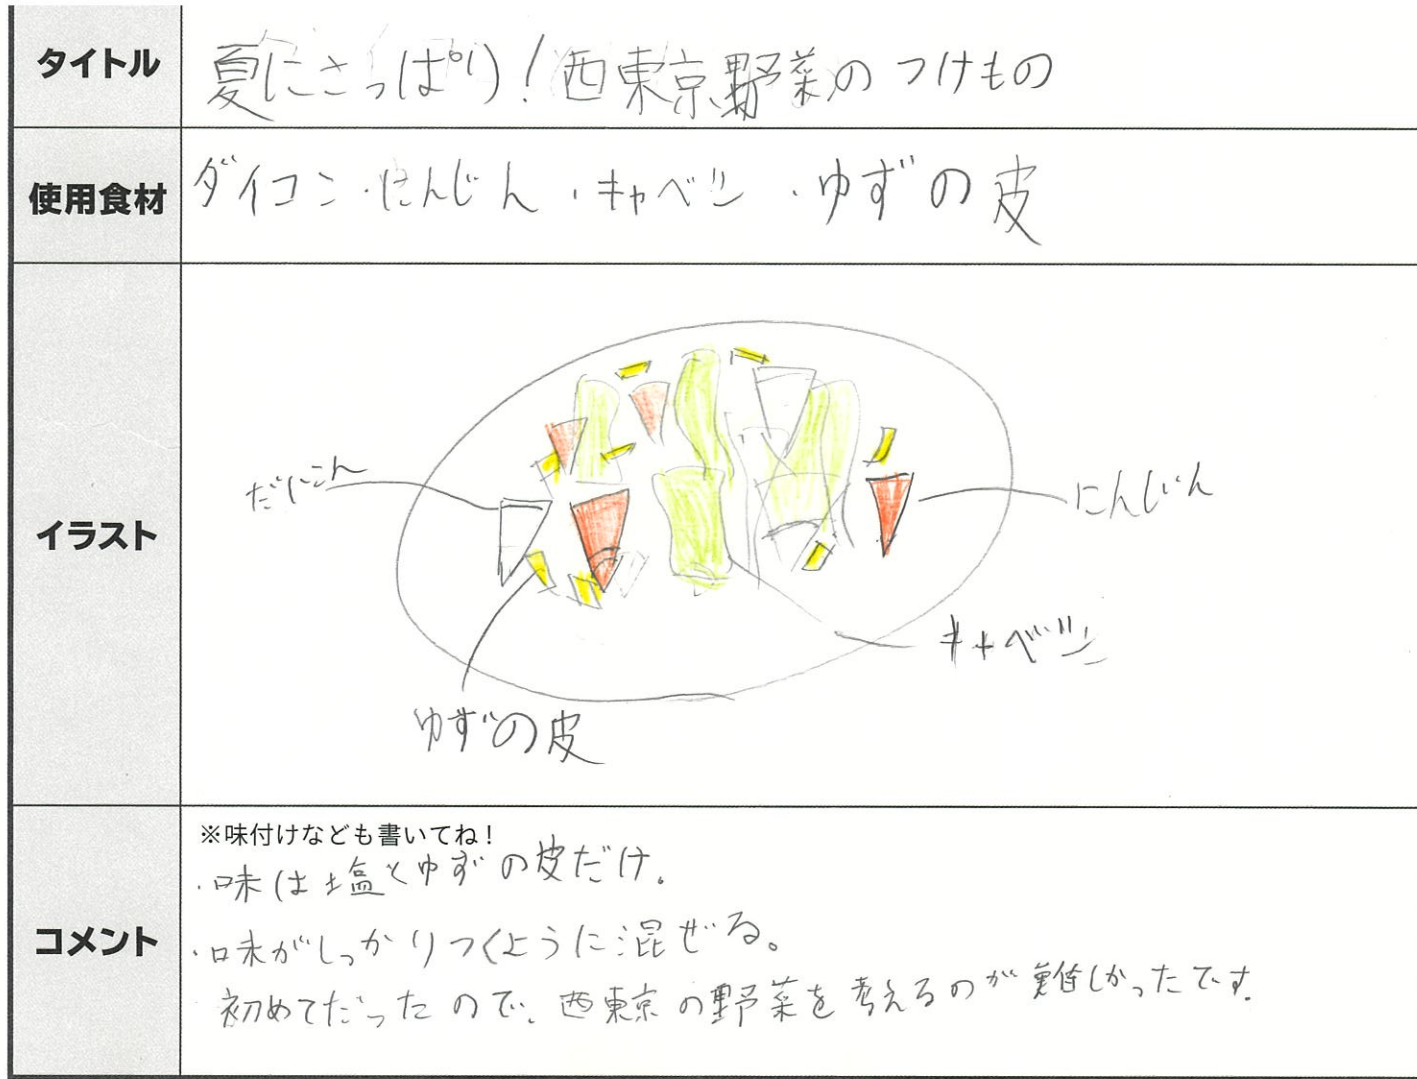 タイトル
夏にさっぱり！西東京野菜のつけもの
使用食材
ダイコン・にんじん・キャベツ・ゆずの皮
イラスト
だいこん
にんじん
キャベツ
ゆずの皮
コメント
※味付けなども書いてね！
・味は塩とゆずの皮だけ。
・味がしっかりつくように混ぜる。
初めてだったので、西東京の野菜を考えるのが難しかったです。